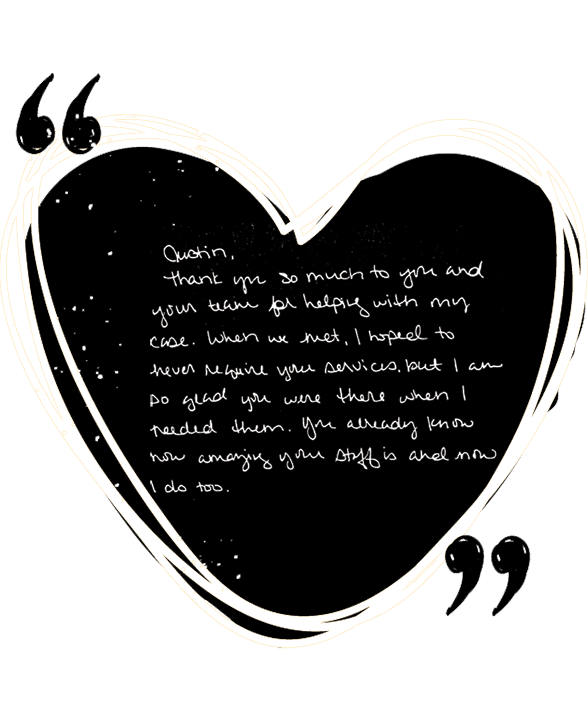 Austin,
Thank you so much to you and
your team for helping with my
case. When we met, I hoped to
never require your services, but I am
so glad you were there when I
needed them. You already know
how amazing your staff is and now
I do too.